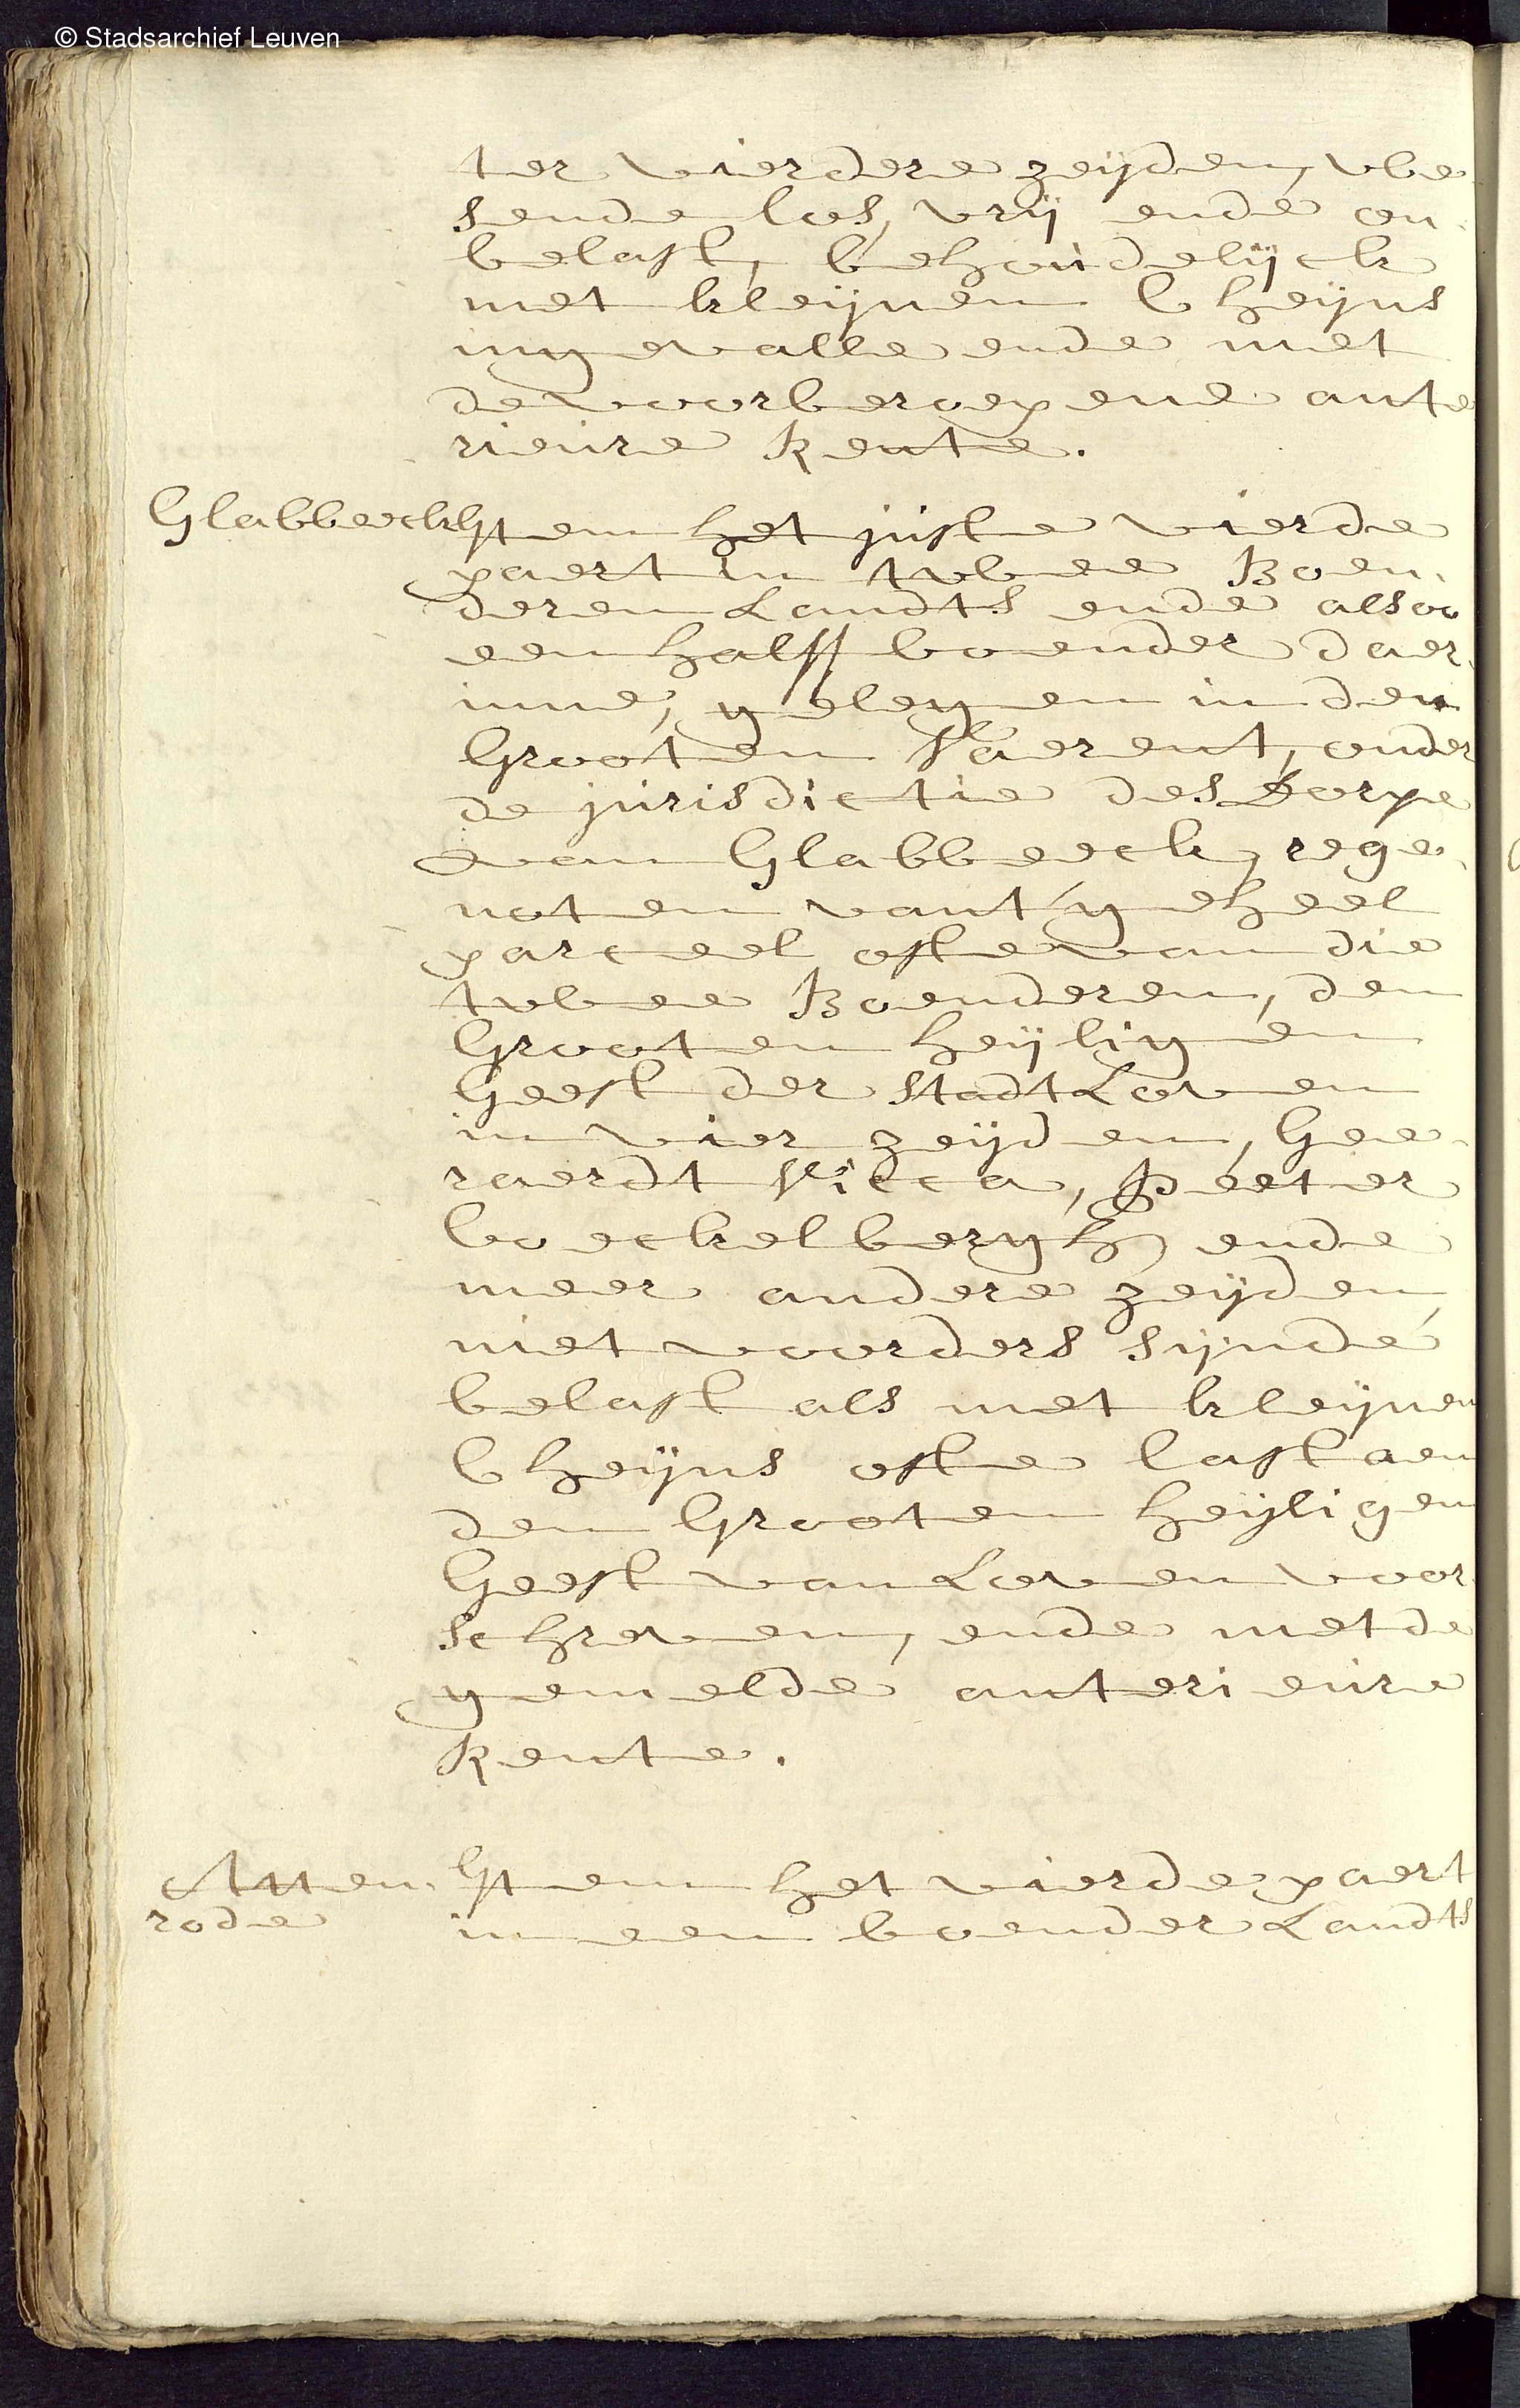 © Stadsarchief Leuven
ter vierdere zeijden, we
sende los, vrij ende on
belast, behoudelijck
met kleijnen Cheijns
ingevalle ende met
de voorberoepene ante
rieure Rente.
Glabbeeck Item het juste vierde
paert in twee Boen
deren Landts ende alsoo
een halff boender daer
inne, gelegen in den
Grooten Vaerent, onder
de jurisdictie des Dorpe
van Glabbeeck, rege
noten vant geheel
parceel ofte van die
twee Boenderen, den
Grooten heijligen
Geest der Stadt Loven
in vier zeijden, Gee
raerdt Vicca, Peeter
boeckelbergh ende
meer andere zeijden,
niet voorders sijnde
belast als met kleijnen
Cheijns ofte last aen
den Grooten heijligen
Geest van Loven voor
schreven, ende met de
gemelde anterieure
Rente.
Atten Item het vierde paert
rode in een boender Landts